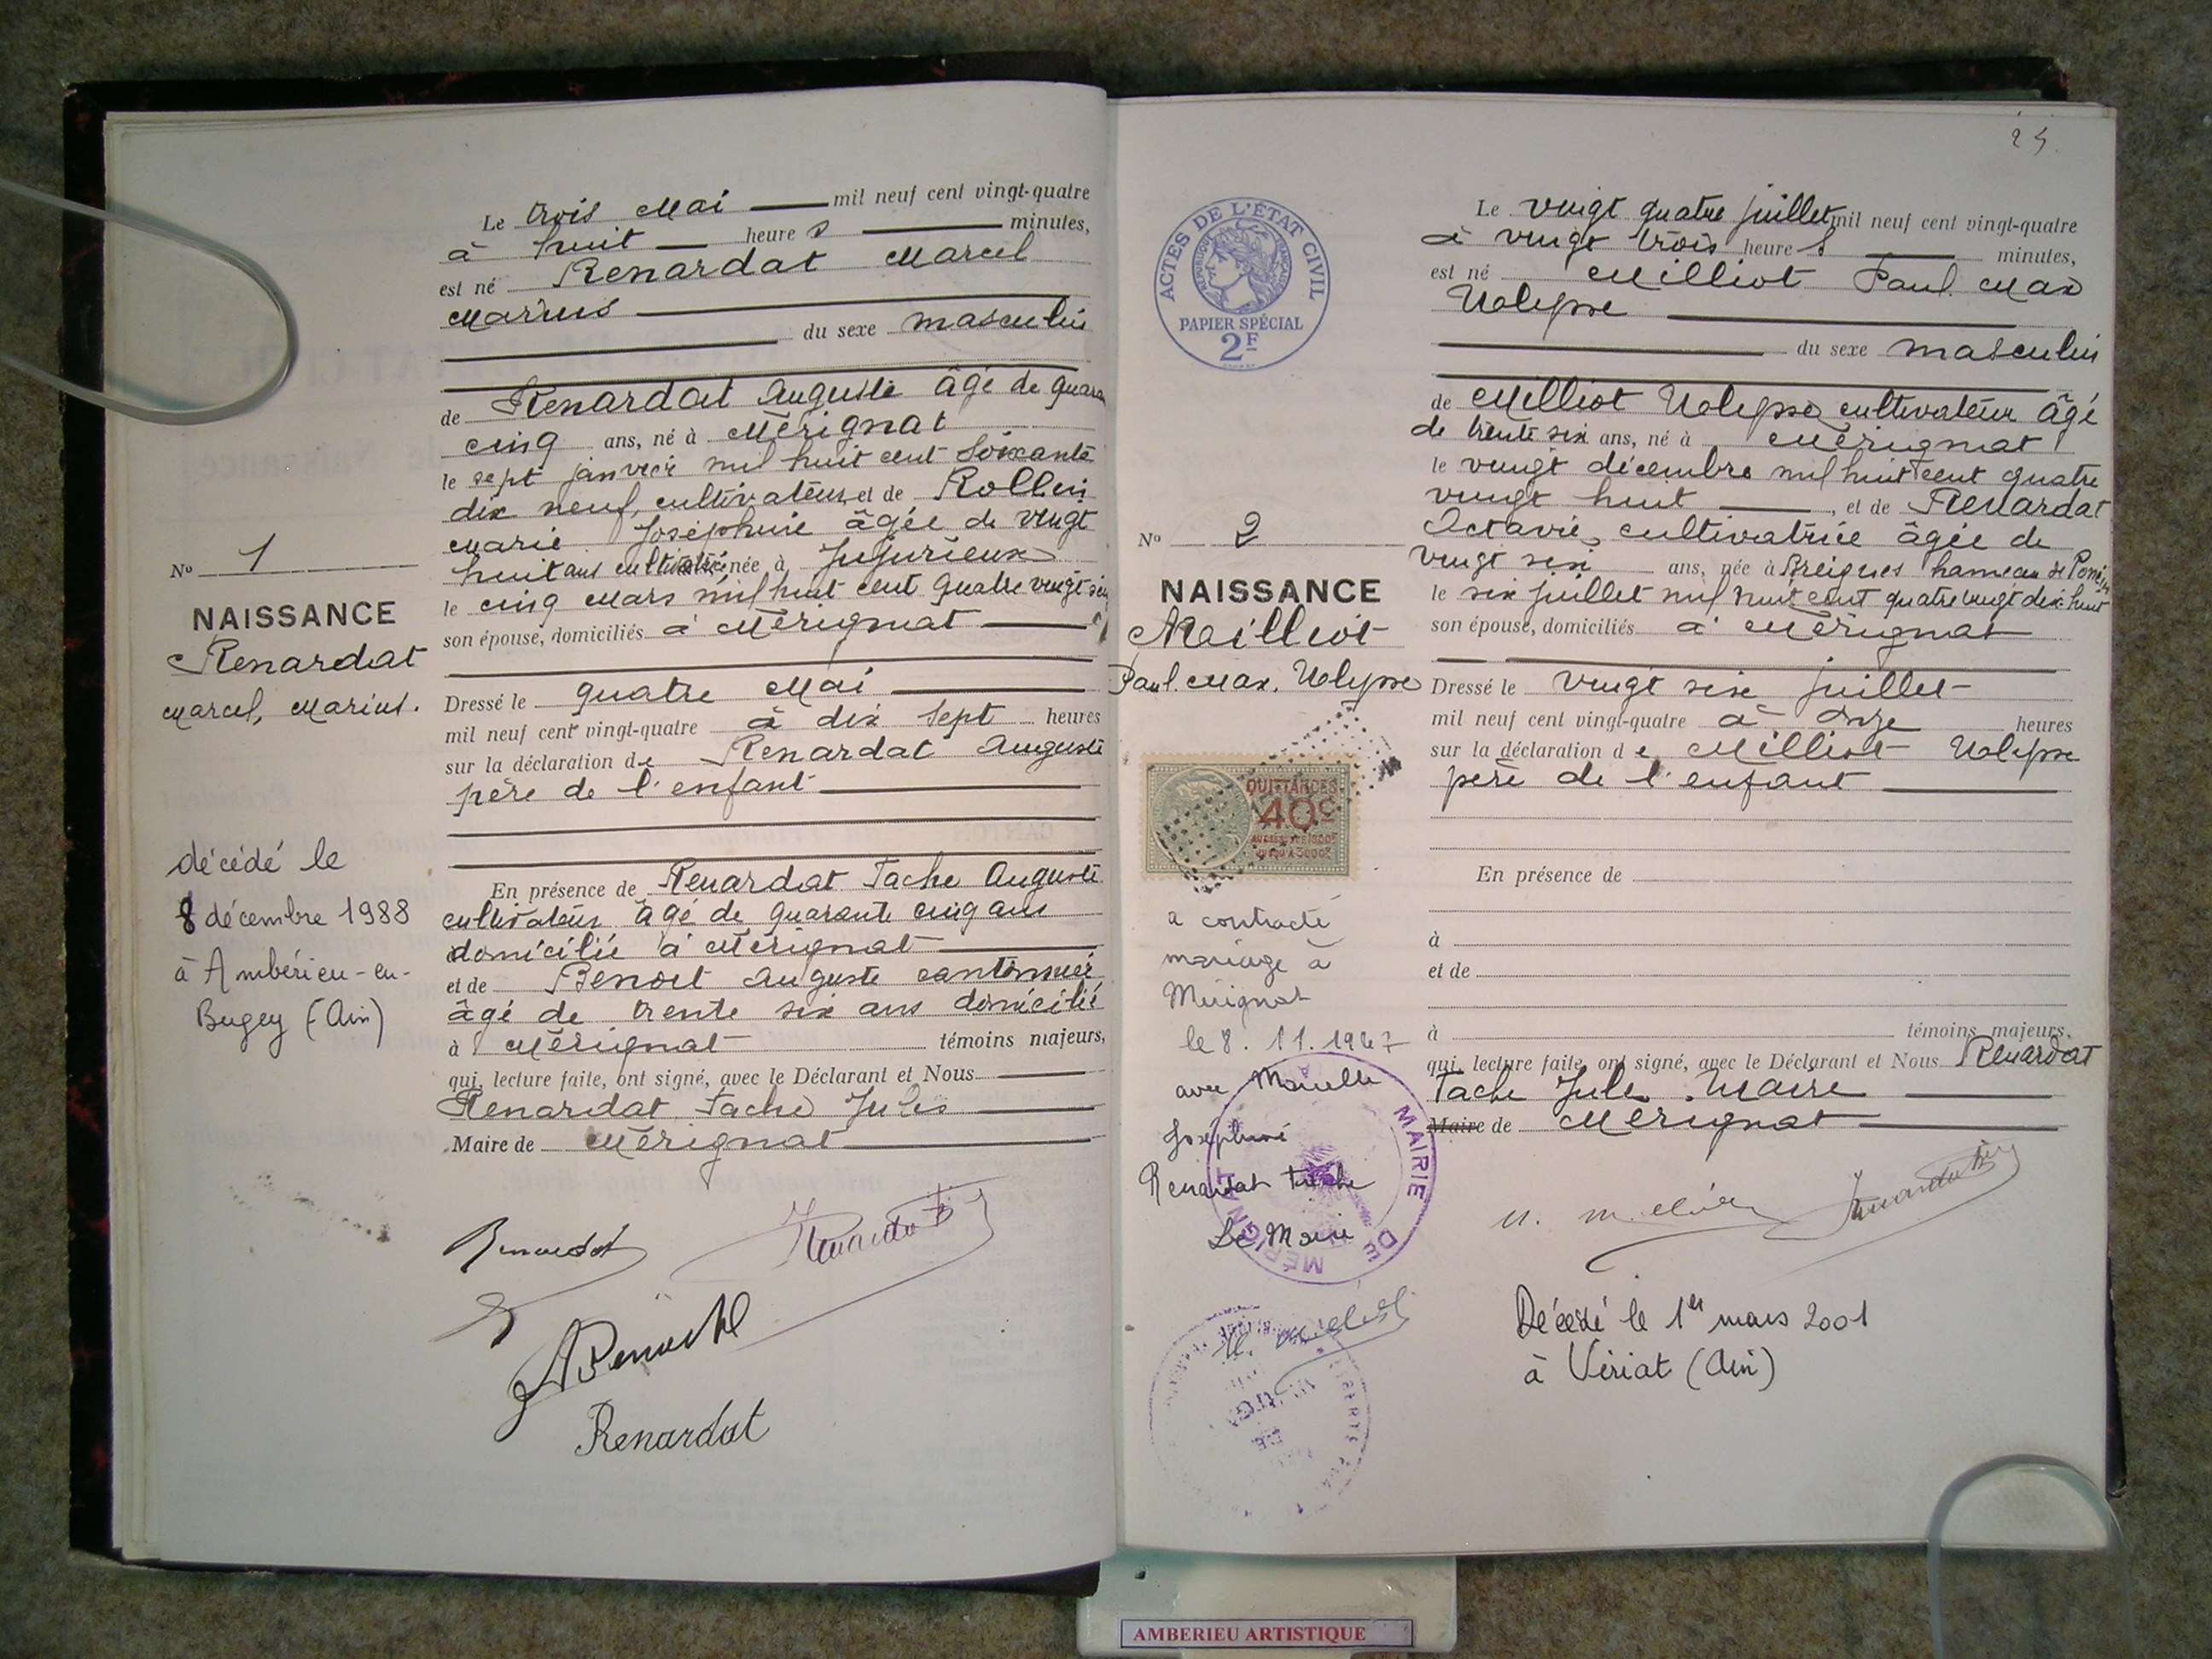 Le trois Mai mil neuf cent vingt-quatre
à huit heures minutes,
est né Renardat Marcel
Marius
du sexe masculin
de Renardat Auguste âgé de quara
cinq ans, né à Mérignat
le sept janvier mil huit cent soixante
dix neuf, cultivateur, et de Rollin
Marie Joséphine âgée de vingt
huit ans cultivatrice née à Jujurieux
le cinq Mars mil huit cent quatre vingt
son épouse, domiciliés à Mérignat
Dressé le quatre Mai
mil neuf cent vingt-quatre à dix sept heures
sur la déclaration de Renardat Auguste
père de l'enfant
En présence de Renardat Tache Auguste
cultivateur âgé de quarante cinq ans
domicilié à Mérignat
et de Benoit Auguste cantonnier
âgé de trente six ans domicilié
à Mérignat témoins majeurs,
qui, lecture faite, ont signé, avec le Déclarant et Nous
Renardat Tache Jules
Maire de Mérignat
Nº 1
NAISSANCE
Renardat
Marcel, Marius.
décédé le
8 décembre 1988
à Ambérieu-en-
Bugey (Ain)
Renardat
Renardat
25
ACTES DE L'ÉTAT CIVIL
RÉPUBLIQUE FRANÇAISE
PAPIER SPÉCIAL
2F
Le vingt quatre juillet mil neuf cent vingt-quatre
à vingt trois heures minutes,
est né Milliot Paul Max
Uolysse
du sexe masculin
de Milliot Uolysse cultivateur âgé
de trente six ans, né à Mérignat
le vingt décembre mil huit cent quatre
vingt huit, et de Renardat
Octavie, cultivatrice âgée de
vingt six ans, née à Breignes hameau de
le six juillet mil huit cent quatre vingt dix huit
son épouse, domiciliés à Mérignat
Dressé le vingt six juillet
mil neuf cent vingt-quatre à onze heures
sur la déclaration de Milliot Uolysse
père de l'enfant
En présence de
à
et de
à témoins majeurs,
qui, lecture faite, ont signé, avec le Déclarant et Nous Renardat
Tache Jules Maire
Maire de Mérignat
Nº 2
NAISSANCE
Milliot
Paul. Max. Uolysse
QUITTANCES
40c
a contracté
mariage à
Mérignat
le 8. 11. 1947
avec Marcelle
Joséphine
Renardat Tache
Le Maire
MAIRIE DE MÉRIGNAT
Décédé le 1er mars 2001
à Viriat (Ain)
AMBERIEU ARTISTIQUE